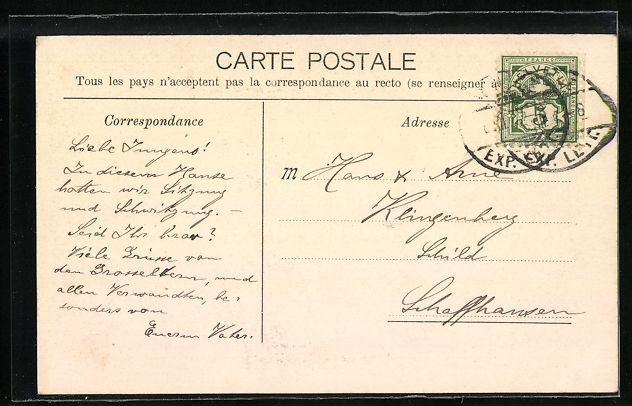 CARTE POSTALE
Tous les pays n'acceptent pas la correspondance au recto (se renseigner
Correspondance
Adresse
Liebe Jungens!
In diesem Hause
hatten wir Sitzung
und Schwitzung. –
Seid Ihr brav?
Viele Grüsse von
den Grosseltern, und
allen Verwandten, be-
sonders von
Eurem Vater.
M Hans & Arne
Klingenberg
Schild
Schaffhausen
FRANCO
EXP. EXP. LETT.